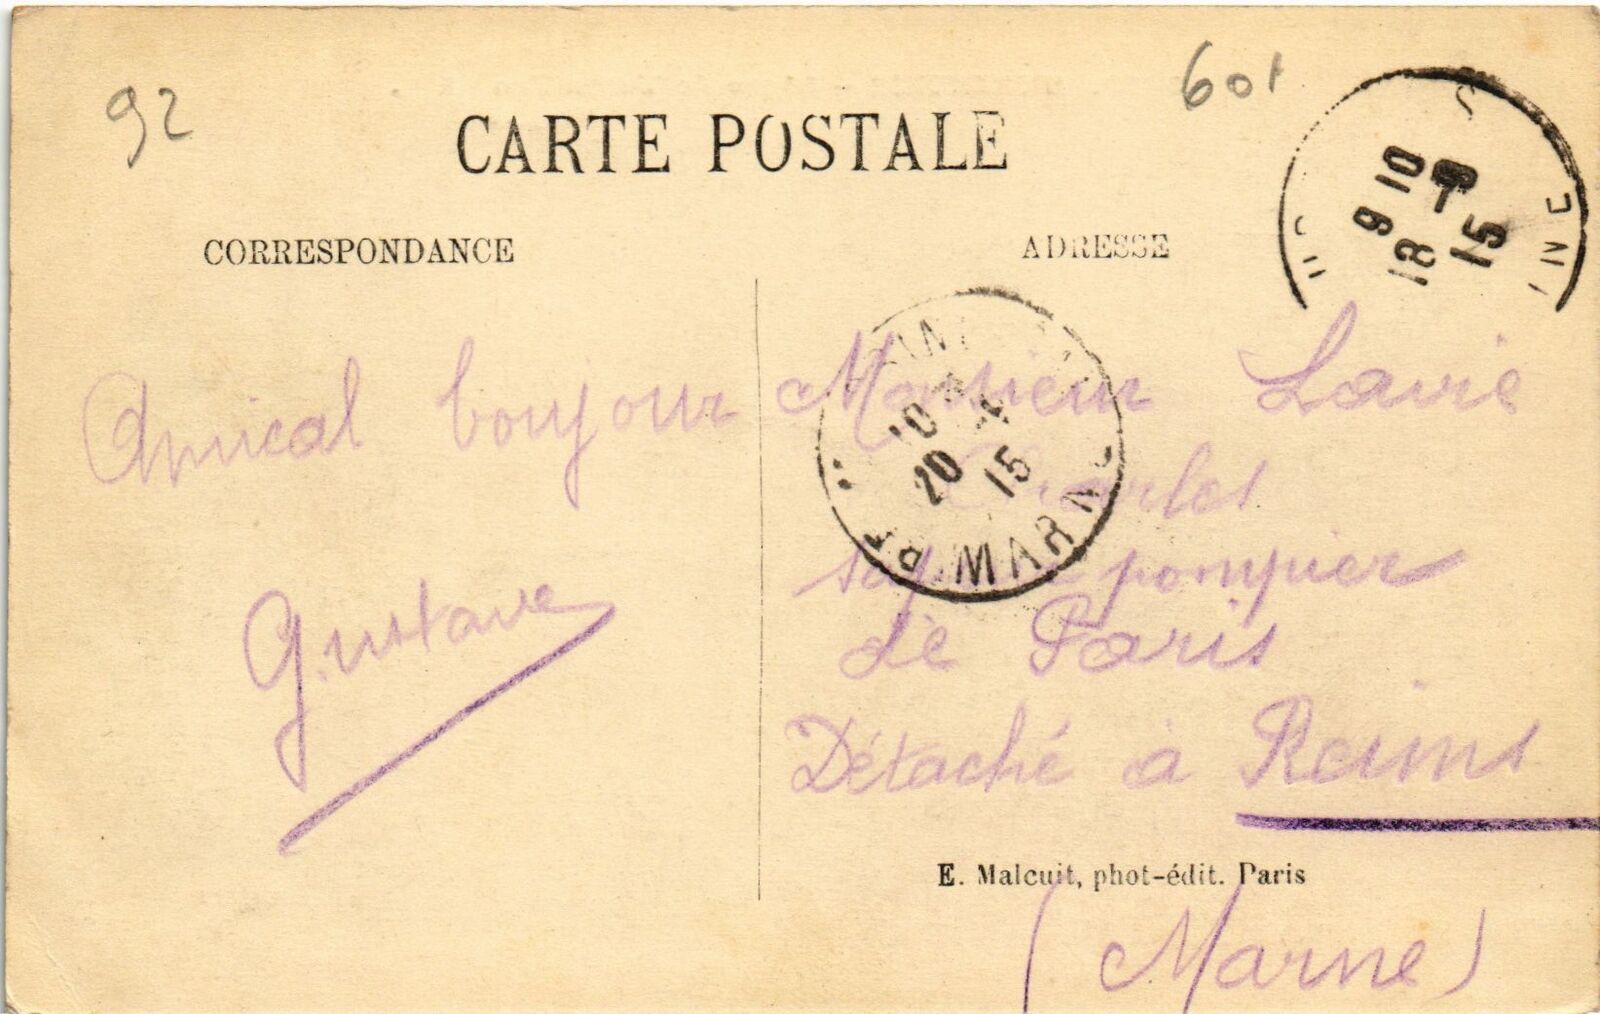 92
601
CARTE POSTALE
CORRESPONDANCE
ADRESSE
9 10
18 15
Amical bonjour
Gustave
Monsieur Lavie
Charles
sapeur pompier
de Paris
Détaché à Reims
(Marne)
10
20 15
MARNE
E. Malcuit, phot-édit. Paris